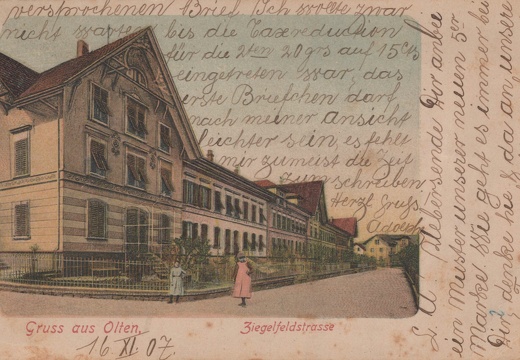 versprochenen Brief. Ich wollte zwar
nicht warten bis die Taxreduction
für die 2ten 20 grs auf 15 Cts
eingetreten war, das
erste Briefchen darf
nach meiner Ansicht
leichter sein, es fehlt
mir zumeist die Zeit
zum schreiben
Herzl. Gruss
Adolf
Gruss aus Olten,
Ziegelfeldstrasse
16 XI 07
L. A. Uebersende Dir anbei
ein Muster unserer neuen 5er
Marke Wie geht es immer bei
Dir denke he & da an unsere